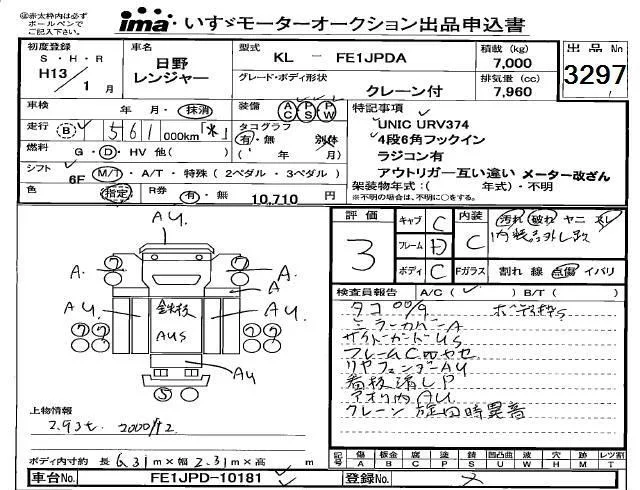 ※赤太枠内は必ず
ボールペンで
ご記入下さい。
ima いすゞモーターオークション出品申込書
初度登録 車名 型式 積載 (kg) 出品No
S・H・R 日野 KL － FE1JPDA 7,000 3297
H13 / 1 月 レンジャー グレード・ボディ形状 排気量 (cc)
クレーン付 7,960
車検 年 月・抹消 装備 AC PS PW 特記事項
UNIC URV374
走行 B 561 000km「米」 タコグラフ 有・無 別体 4段6角フックイン
燃料 G・D・HV 他( ) ( 年 月) ラジコン有
シフト 6F M/T・A/T・特殊(2ペダル・3ペダル) アウトリガー互い違い メーター改ざん
色 指定 R券 有・無 10,710 円 架装物年式:( 年式)・不明
※不明の場合は、不明に○をする。
評価 3
キャブ C 内装 C 汚れ 破れ ヤニ スレ
フレーム D 内装品外し跡
ボディ C Fガラス 割れ 線 点傷 イバリ
検査員報告 A/C( ) B/T( )
タコ 00/9 ボデー枠S
ミラーカバーA
サイドガードUS
フレームC
リヤフェンダーAU
看板消しP
アオリ内AU
クレーン旋回時異音
AU
A. A.
A
AU AU
鉄板
AUS
AU
上物情報
2.93t. 2000/12
ボディ内寸約 長 6.31 m×幅 2.31 m×高 m
記号 傷 A 板金 B 腐 C 塗 P 錆 S 凹凸曲 U 波 W 穴 H 跡 M レツ割 T
車台No. FE1JPD-10181 登録No.